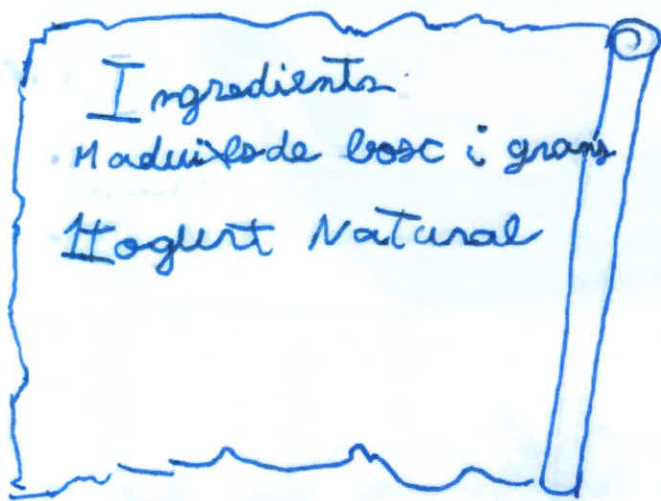 Ingredients
Maduixes de bosc i grans
Iogurt Natural